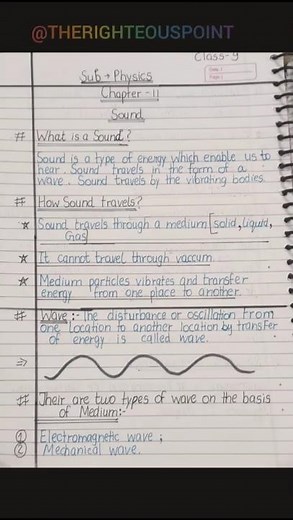 @THERIGHTEOUSPOINT
Class-9
Sub → Physics
Chapter - 11
Sound
# What is a Sound?
Sound is a type of energy which enable us to
hear. Sound travels in the form of a
wave. Sound travels by the vibrating bodies.
# How Sound travels?
★ Sound travels through a medium [solid, liquid,
Gas]
★ It cannot travel through vaccum.
★ Medium particles vibrates and transfer
energy from one place to another.
# Wave :- The disturbance or oscillation from
one location to another location by transfer
of energy is called wave.
⇒
# Their are two types of wave on the basis
of Medium:-
① Electromagnetic wave ;
② Mechanical wave.